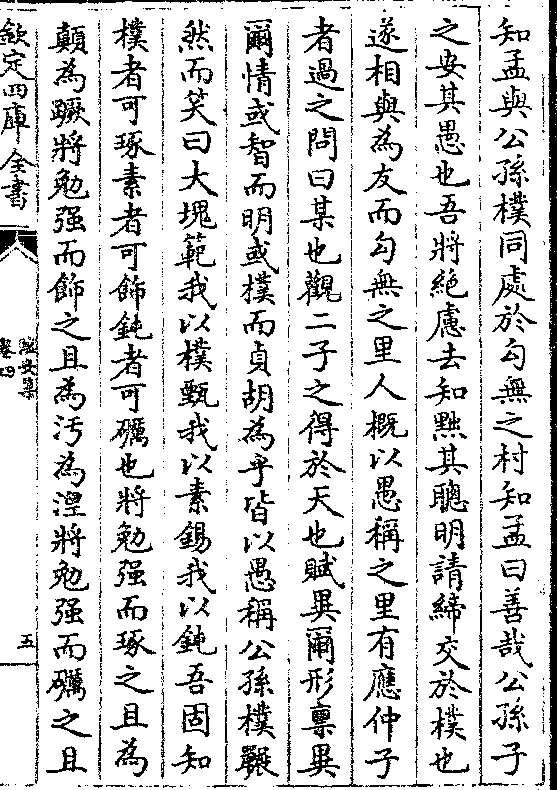 知孟與公孫樸同處於勾無之村知孟曰善哉公孫子
之安其愚也吾將絶慮去知黜其聰明請締交於樸也
遂相與為友而勾無之里人概以愚稱之里有應仲子
者過之問曰某也觀二子之得於天也賦異爾形稟異
爾情或智而明或樸而貞胡為乎皆以愚稱公孫樸囅
然而笑曰大塊範我以樸甄我以素錫我以鈍吾固知
樸者可琢素者可飾鈍者可礪也將勉强而琢之且為
顛為蹶將勉强而飾之且為汚為湼將勉强而礪之且
欽定四庫全書
卷四
五